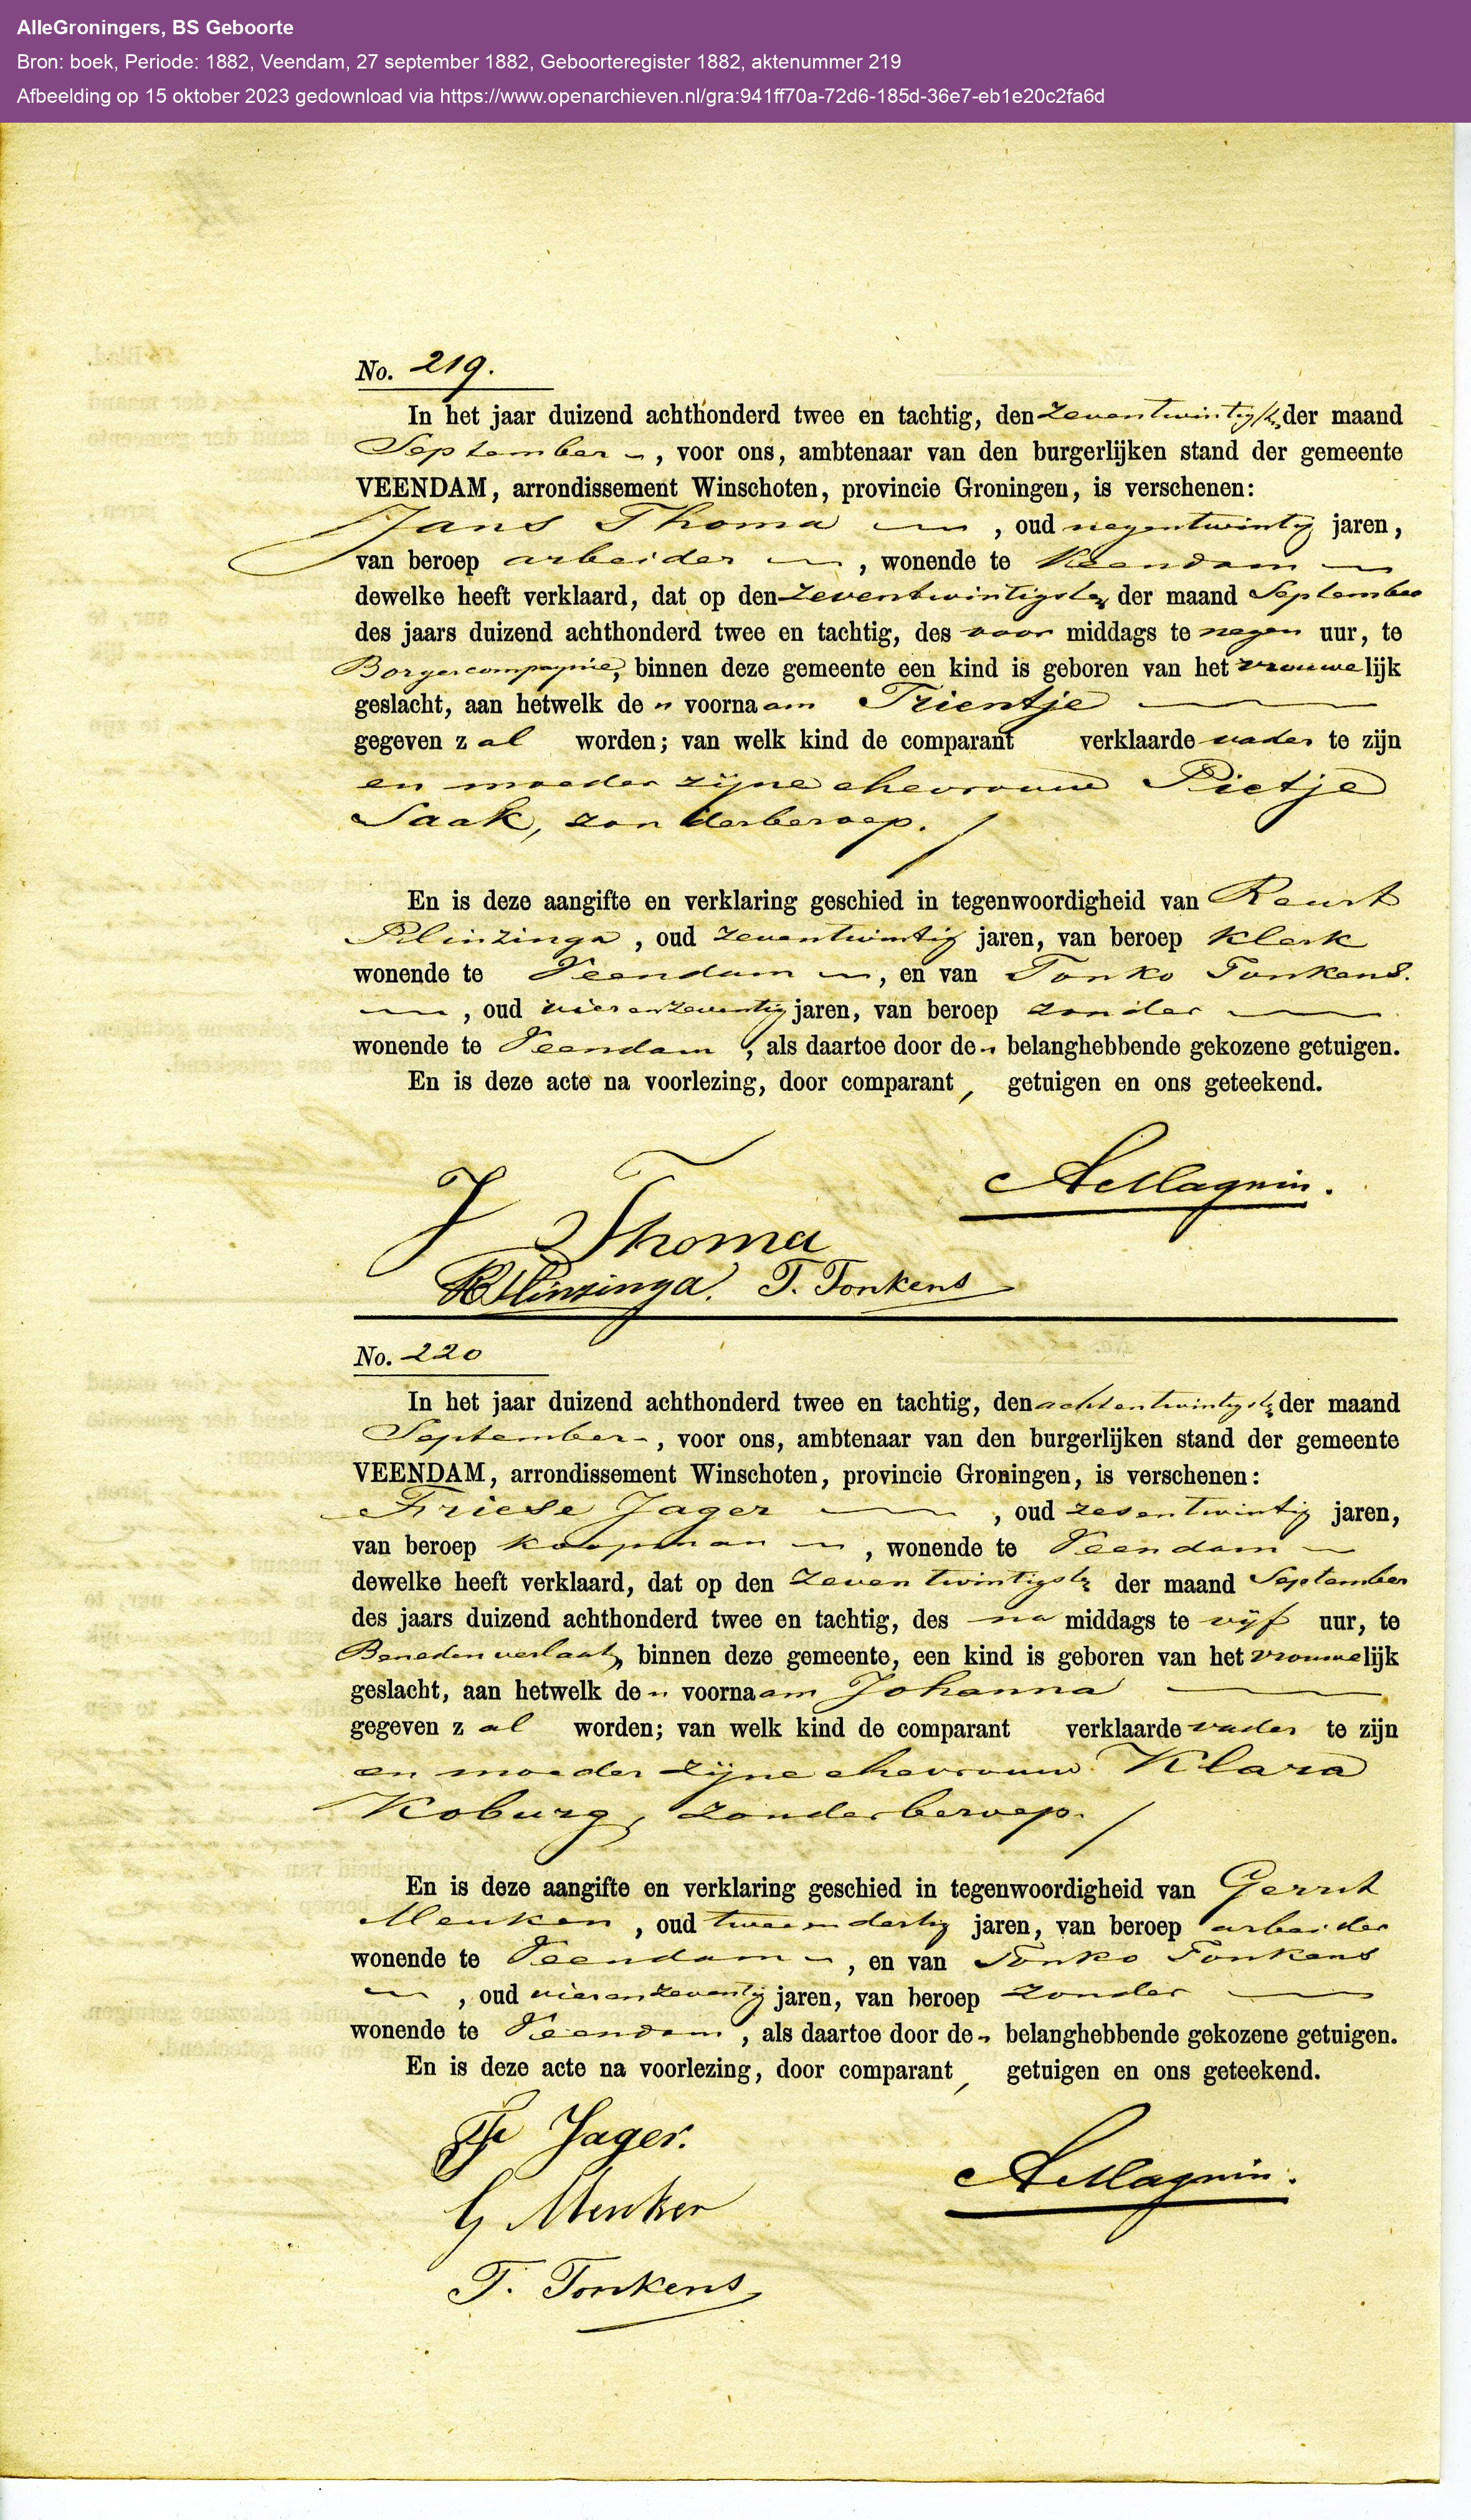 AlleGroningers, BS Geboorte
Bron: boek, Periode: 1882, Veendam, 27 september 1882, Geboorteregister 1882, aktenummer 219
Afbeelding op 15 oktober 2023 gedownload via https://www.openarchieven.nl/gra:941ff70a-72d6-185d-36e7-eb1e20c2fa6d
No. 219.
In het jaar duizend achthonderd twee en tachtig, den zeventwintigste der maand
September, voor ons, ambtenaar van den burgerlijken stand der gemeente
VEENDAM, arrondissement Winschoten, provincie Groningen, is verschenen:
Jans Thoma, oud negentwintig jaren,
van beroep arbeider, wonende te Veendam
dewelke heeft verklaard, dat op den zeventwintigste der maand September
des jaars duizend achthonderd twee en tachtig, des voor middags te negen uur, te
Borgercompagnie, binnen deze gemeente een kind is geboren van het vrouwelijk
geslacht, aan hetwelk de n voornaam Trientje
gegeven zal worden; van welk kind de comparant verklaarde vader te zijn
en moeder zijne ehevrouw Pietje
Saak, zonder beroep.
En is deze aangifte en verklaring geschied in tegenwoordigheid van Reurt
Plinzinga, oud zeventwintig jaren, van beroep klerk
wonende te Veendam, en van Tonko Tonkens.
, oud vierenzeventig jaren, van beroep zonder
wonende te Veendam, als daartoe door de n belanghebbende gekozene getuigen.
En is deze acte na voorlezing, door comparant, getuigen en ons geteekend.
AMagnin.
J Thoma
RPlinzinga. T. Tonkens
No. 220
In het jaar duizend achthonderd twee en tachtig, den achtentwintigste der maand
September, voor ons, ambtenaar van den burgerlijken stand der gemeente
VEENDAM, arrondissement Winschoten, provincie Groningen, is verschenen:
Friese Jager, oud zesentwintig jaren,
van beroep koopman, wonende te Veendam
dewelke heeft verklaard, dat op den zeventwintigste der maand September
des jaars duizend achthonderd twee en tachtig, des na middags te vijf uur, te
Benedenverlaat, binnen deze gemeente, een kind is geboren van het vrouwelijk
geslacht, aan hetwelk de n voornaam Johanna
gegeven zal worden; van welk kind de comparant verklaarde vader te zijn
en moeder zijne ehevrouw Klara
Koburg, zonder beroep.
En is deze aangifte en verklaring geschied in tegenwoordigheid van Gerrit
Menken, oud tweeendertig jaren, van beroep arbeider
wonende te Veendam, en van Tonko Tonkens
, oud vierenzeventig jaren, van beroep zonder
wonende te Veendam, als daartoe door de n belanghebbende gekozene getuigen.
En is deze acte na voorlezing, door comparant, getuigen en ons geteekend.
Fr Jager.
AMagnin.
G Menker
T. Tonkens